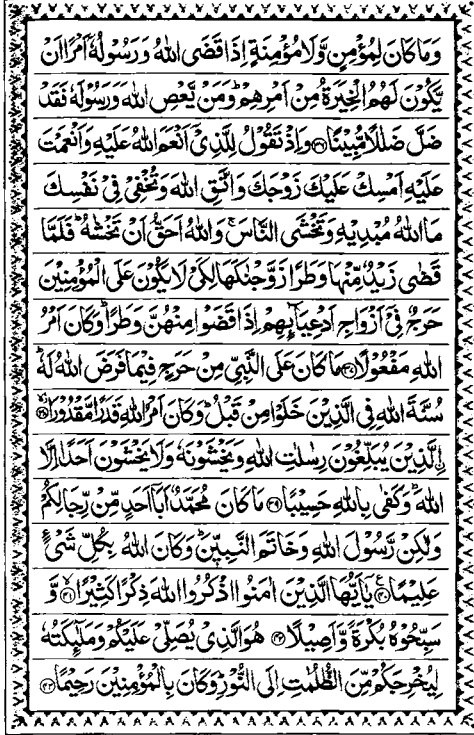 وَمَا كَانَ لِمُؤْمِنٍ وَّلَا مُؤْمِنَةٍ اِذَا قَضَى اللّٰهُ وَرَسُوْلُهٗٓ اَمْرًا اَنْ
يَّكُوْنَ لَهُمُ الْخِيَرَةُ مِنْ اَمْرِهِمْ ؕ وَمَنْ يَّعْصِ اللّٰهَ وَرَسُوْلَهٗ فَقَدْ
ضَلَّ ضَلٰلًا مُّبِيْنًا ﴿۳۶﴾ وَاِذْ تَقُوْلُ لِلَّذِيْٓ اَنْعَمَ اللّٰهُ عَلَيْهِ وَاَنْعَمْتَ
عَلَيْهِ اَمْسِكْ عَلَيْكَ زَوْجَكَ وَاتَّقِ اللّٰهَ وَتُخْفِيْ فِيْ نَفْسِكَ
مَا اللّٰهُ مُبْدِيْهِ وَتَخْشَى النَّاسَ ۚ وَاللّٰهُ اَحَقُّ اَنْ تَخْشٰهُ ؕ فَلَمَّا
قَضٰى زَيْدٌ مِّنْهَا وَطَرًا زَوَّجْنٰكَهَا لِكَيْ لَا يَكُوْنَ عَلَى الْمُؤْمِنِيْنَ
حَرَجٌ فِيْٓ اَزْوَاجِ اَدْعِيَآئِهِمْ اِذَا قَضَوْا مِنْهُنَّ وَطَرًا ؕ وَكَانَ اَمْرُ
اللّٰهِ مَفْعُوْلًا ﴿۳۷﴾ مَا كَانَ عَلَى النَّبِيِّ مِنْ حَرَجٍ فِيْمَا فَرَضَ اللّٰهُ لَهٗ ؕ
سُنَّةَ اللّٰهِ فِي الَّذِيْنَ خَلَوْا مِنْ قَبْلُ ؕ وَكَانَ اَمْرُ اللّٰهِ قَدَرًا مَّقْدُوْرًا ﴿۳۸﴾
اۨلَّذِيْنَ يُبَلِّغُوْنَ رِسٰلٰتِ اللّٰهِ وَيَخْشَوْنَهٗ وَلَا يَخْشَوْنَ اَحَدًا اِلَّا
اللّٰهَ ؕ وَكَفٰى بِاللّٰهِ حَسِيْبًا ﴿۳۹﴾ مَا كَانَ مُحَمَّدٌ اَبَآ اَحَدٍ مِّنْ رِّجَالِكُمْ
وَلٰكِنْ رَّسُوْلَ اللّٰهِ وَخَاتَمَ النَّبِيّٖنَ ؕ وَكَانَ اللّٰهُ بِكُلِّ شَيْءٍ
عَلِيْمًا ﴿۴۰﴾ يٰٓاَيُّهَا الَّذِيْنَ اٰمَنُوا اذْكُرُوا اللّٰهَ ذِكْرًا كَثِيْرًا ﴿۴۱﴾ وَّ
سَبِّحُوْهُ بُكْرَةً وَّاَصِيْلًا ﴿۴۲﴾ هُوَ الَّذِيْ يُصَلِّيْ عَلَيْكُمْ وَمَلٰٓئِكَتُهٗ
لِيُخْرِجَكُمْ مِّنَ الظُّلُمٰتِ اِلَى النُّوْرِ ؕ وَكَانَ بِالْمُؤْمِنِيْنَ رَحِيْمًا ﴿۴۳﴾